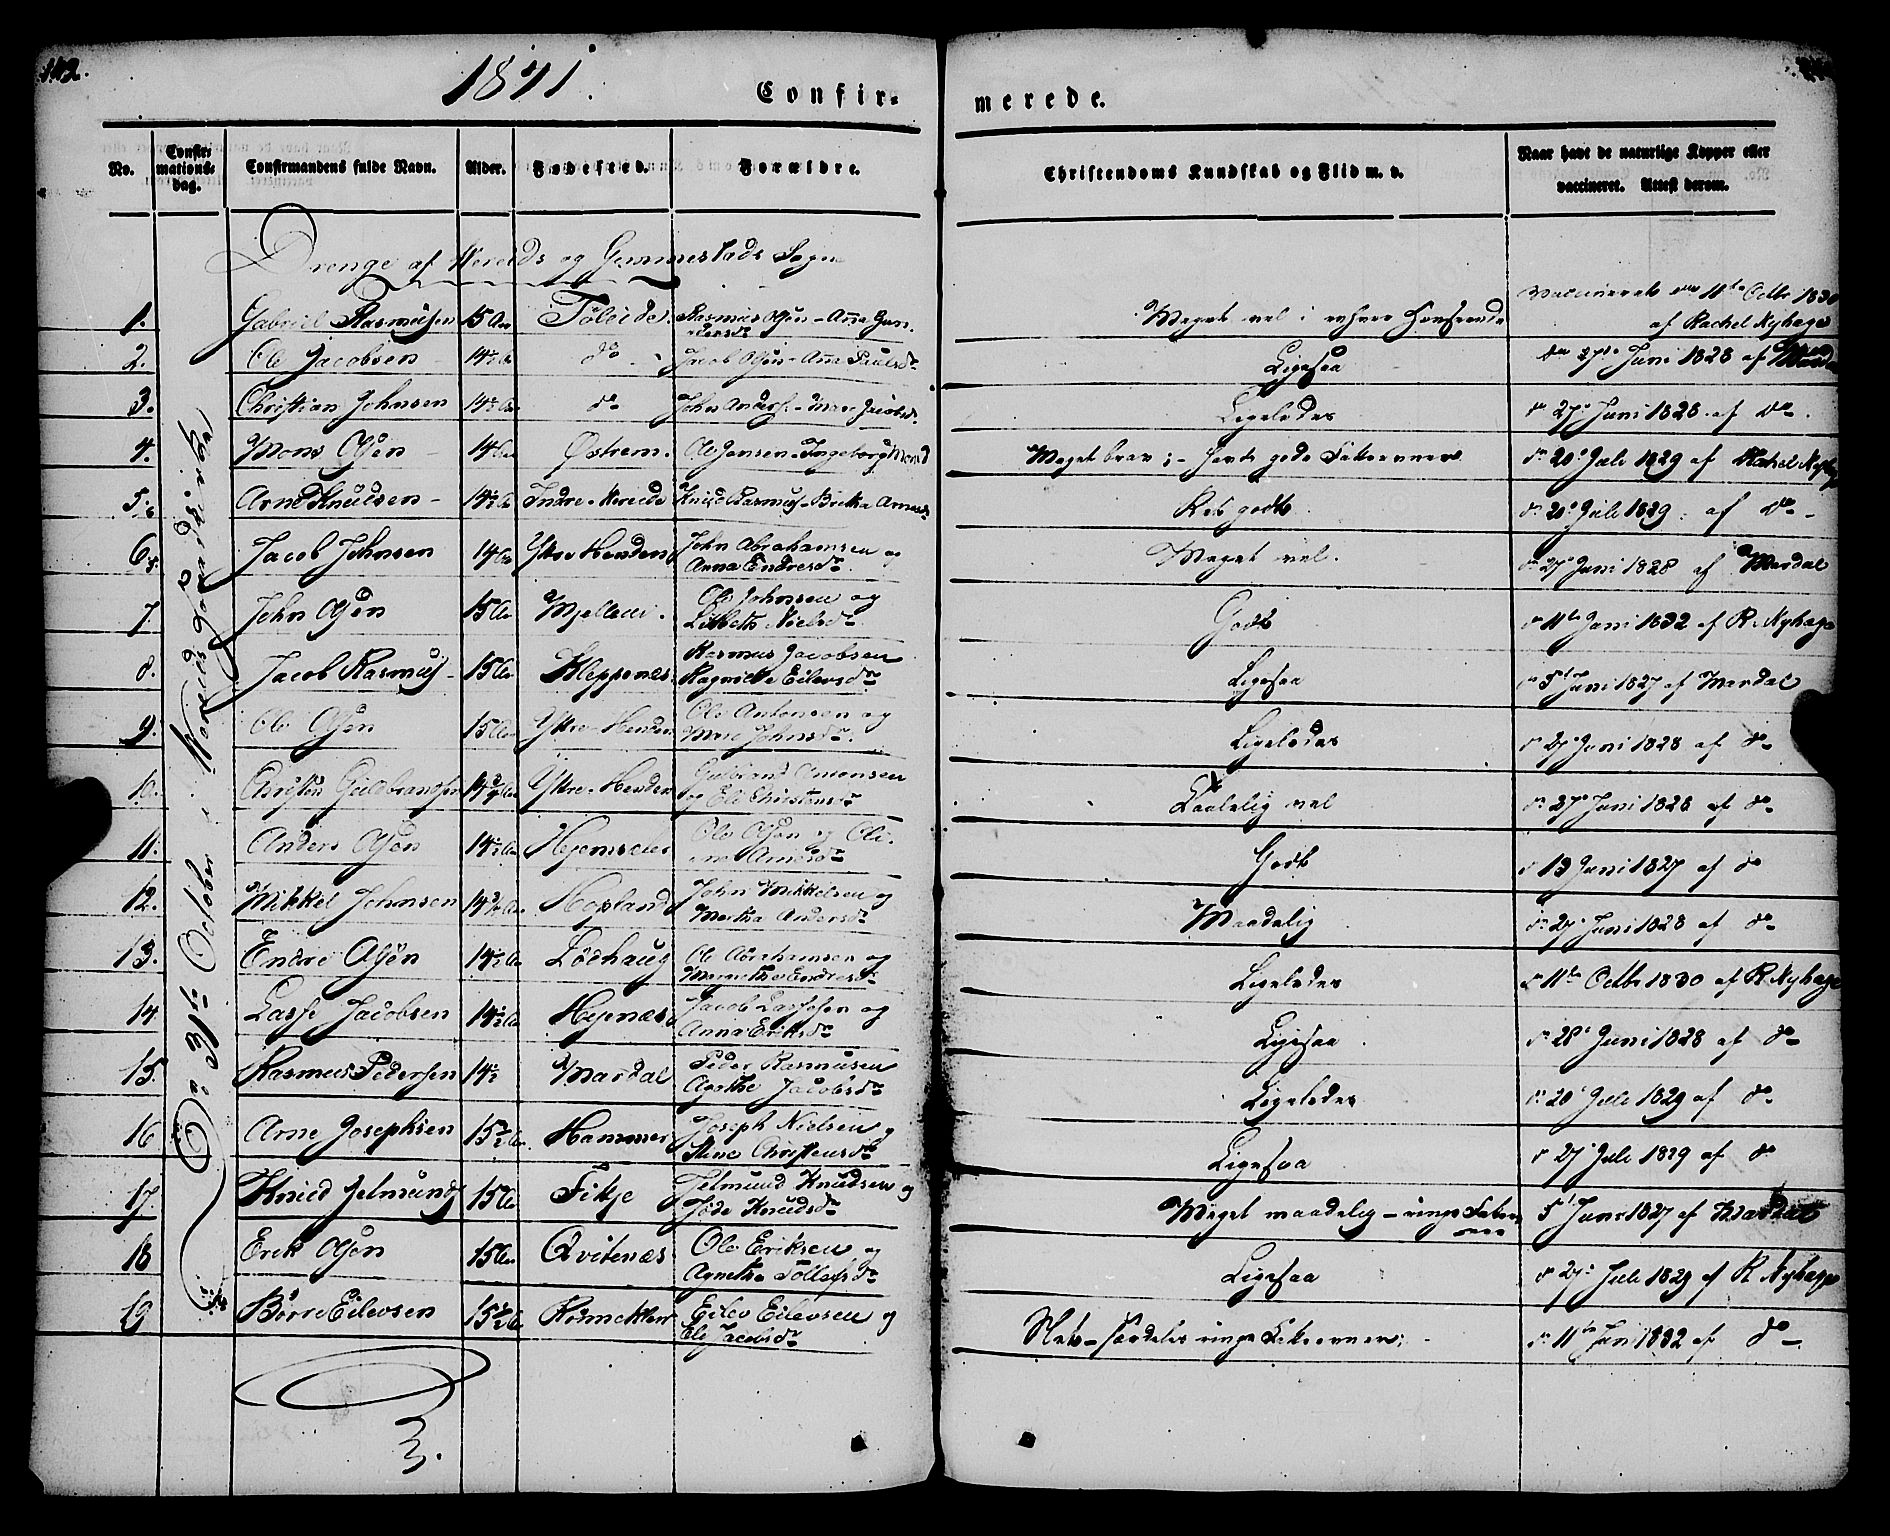 142.
1841.
Confir-
merede.
No.
Confirmationsdag.
Confirmandens fulde Navn.
Alder.
Fødested.
Forældre.
Christendoms Kundskab og Flid m. v.
Naar havt de naturlige Kopper eller vaccineret. Attest derom.
Drenge af Nereids og Gemmestads Sogn
Den 31te October i Nereids gaardskirke
1. Gabriel Rasmussen 15 Aar Rasmus Olsen - Anne Gunnersdr Meget vel i enhver Henseende Vaccineret den 11te Octbr 1830 af Rachel Nyhage
2. Ole Jacobsen 14½ Aar do Jacob Olsen - Anne Paulsdr Ligesaa dn 27de Juni 1828 af Mardal
3. Christian Johnsen 14½ Aar do John Anders. - Mari Jacobsdr Ligeledes dn 27de Juni 1828 af do
4. Mons Olsen 14 Aar Østrem Ole Jensen - Ingeborg Monsd Meget brav; - havt gode Evner dn 20de Juli 1829 af Rachel Nyhage
5. Arne Knudsen 14½ Aar Indre-Nereide Knud Rasmus. - Britha Arnesdr Ret godt dn 20de Juli 1829 af do
6. Jacob Johnsen 14 Aar Ytre Henden John Abrahamsen og Anna Endresdr Meget vel. dn 27de Juni 1828 af Mardal
7. John Olsen 15 Aar Ole Johnsen og Lisbeth Nielsdr Godt dn 11te Juni 1832 af R. Nyhage
8. Jacob Rasmus. 15 Aar Kleppenæs Rasmus Jacobsen Ragnilda Eilevsdr Ligesaa dn 5te Juni 1827 af Mardal
9. Ole Olsen 15 Aar Ytre-Henden Ole Antonsen og Mari Johnsdr Ligeledes dn 27de Juni 1828 af do
10. Christen Guldbrandsen 14¾ Aar Ytre-Henden Gulbrand Amonsen og Eli Christensdr Taalelig vel dn 27de Juni 1828 af do
11. Anders Olsen 14½ Aar Hjemsæter Ole Olsen og Oline Arnesdr Godt d 13 Juni 1827 af do
12. Mikkel Johnsen 14¾ Aar Hopland John Mikkelsen og Martha Andersdr Maadelig dn 27de Juni 1828 af do
13. Endre Olsen 14½ Aar Lødhaug Ole Abrahamsen og Margretha Endresdr Ligeledes d 11te Octbr 1830 af R. Nyhage
14. Lasse Jacobsen 14½ Aar Hejenæs Jacob Lassesen og Anna Eriksdr Ligesaa. dn 28de Juni 1828 af do
15. Rasmus Pedersen 14½ Mardal Peder Rasmusen Agethe Jacobsdr Ligeledes dn 20de Juli 1829 af do
16 Arne Josephsen 15½ Aar Hammer Joseph Nielsen og Stine Christensdr Ligesaa d 27 Juli 1829 af do
17. Knud Jelmunds. 15 Aar Fitje Jelmund Knudsen og Jøde Knudsdr Meget maadelig - ringe Evner 5te Juni 1827 af Mardal
18 Erik Olsen 15 Aar Qvitenæs Ole Eriksen og Agnetha Tollefsdr Ligesaa dn 27de Juli 1829 af R. Nyhage
19 Børre Eilevsen 15½ Aar Rønneklev Eilev Eilevsen og Eli Jacobsdr Slet - særdeles ringe Evner; dn 11te Juni 1832 af do
3.